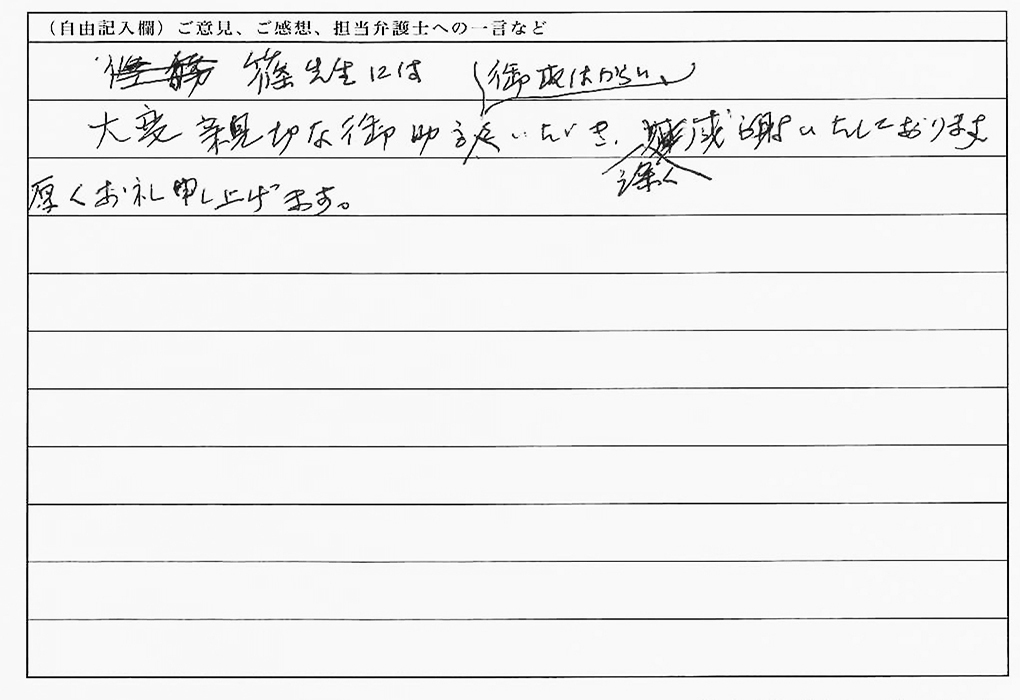 （自由記入欄）ご意見、ご感想、担当弁護士への一言など
篠先生には 御取はからい、
大変親切な御助言いただき、深く感謝いたしております
厚くお礼申し上げます。